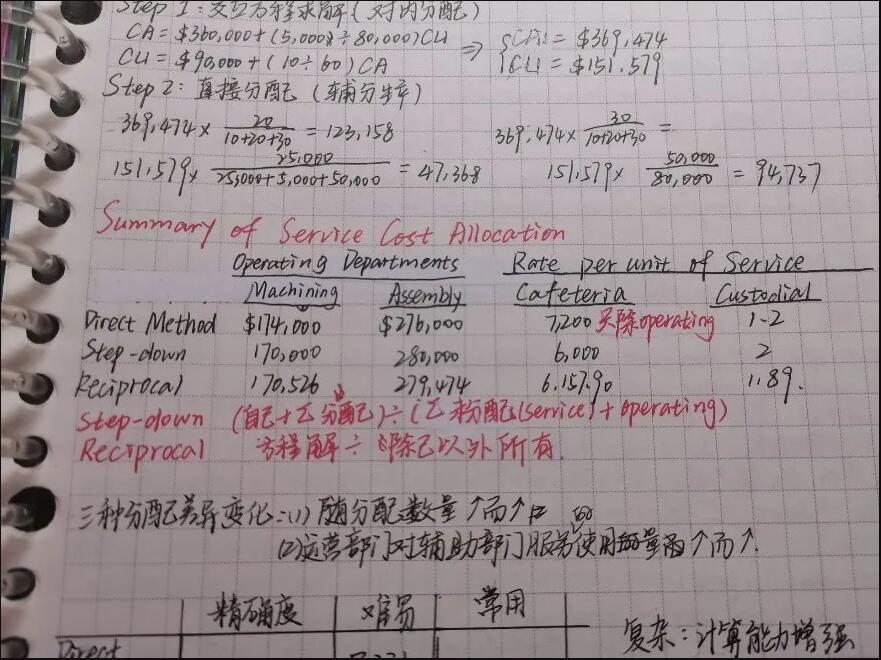 Step 1: 交互方程求解(对内分配)
CA = $360,000 + (5,000 ÷ 80,000) CU
CU = $90,000 + (10 ÷ 60) CA
⇒ { CA = $369,474
CU = $151.579
Step 2: 直接分配 (辅分生产)
369,474 × 20/(10+20+30) = 123,158
369,474 × 30/(10+20+30) =
151,579 × 25,000/(25,000+5,000+50,000) = 47,368
151,579 × 50,000/80,000 = 94,737
Summary of Service Cost Allocation
Operating Departments Rate per unit of Service
Machining Assembly Cafeteria Custodial
Direct Method $174,000 $276,000 7,200 只除operating 1.2
Step-down 170,000 280,000 6,000 2
Reciprocal 170,526 279,474 6.157.90 1.89.
Step-down (自己+Σ分配)÷(Σ 分配(service)+operating)
Reciprocal 方程解÷ 除己以外所有.
三种分配差异变化:(1) 随分配数量↑而↑
(2)运营部门对辅助部门服务使用量↑而↑.
精确度 难易 常用
Direct
复杂:计算能力增强